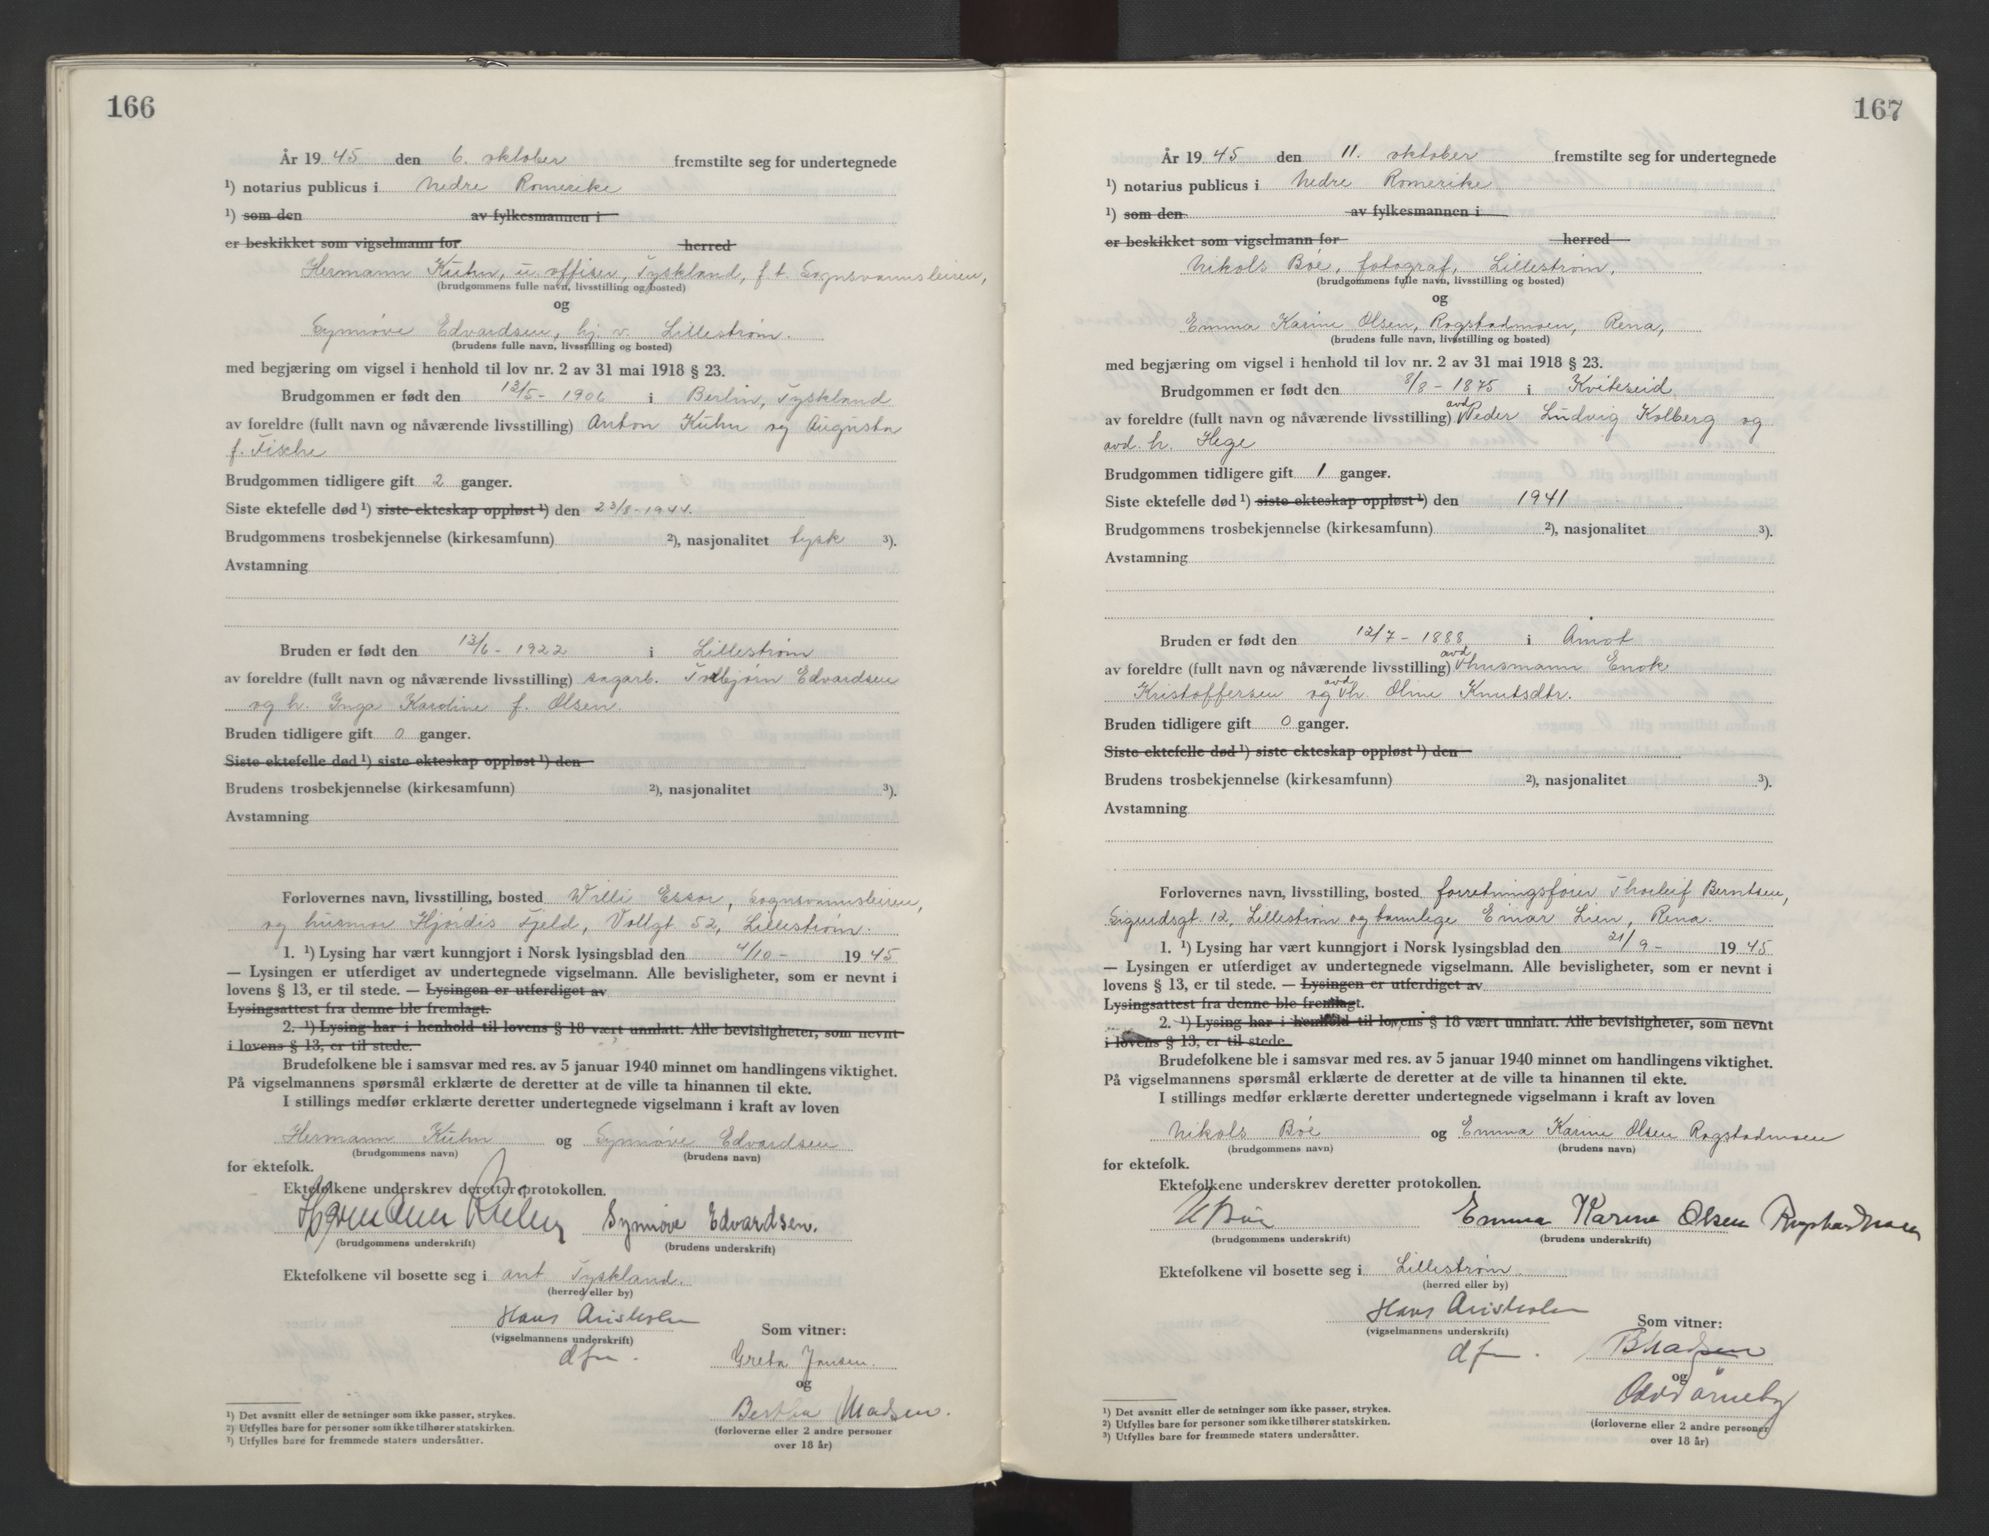 166
År 1945 den 6. oktober fremstilte seg for undertegnede
¹) notarius publicus i Nedre Romerike
¹) som den av fylkesmannen i
er beskikket som vigselmann for herred
Hermann Kühn, u. offiser, Tyskland, f.t. Sognsvannsleiren,
(brudgommens fulle navn, livsstilling og bosted)
og
Synnøve Edvardsen, hj. v. Lillestrøm.
(brudens fulle navn, livsstilling og bosted)
med begjæring om vigsel i henhold til lov nr. 2 av 31 mai 1918 § 23.
Brudgommen er født den 12/5 - 1906 i Berlin, Tyskland
av foreldre (fullt navn og nåværende livsstilling) Anton Kühn og Augusta
f. Fische
Brudgommen tidligere gift 2 ganger.
Siste ektefelle død ¹) siste ekteskap oppløst ¹) den 23/8-1944.
Brudgommens trosbekjennelse (kirkesamfunn) ²), nasjonalitet tysk ³).
Avstamning
Bruden er født den 13/6 - 1922 i Lillestrøm
av foreldre (fullt navn og nåværende livsstilling) sagarb. Torbjørn Edvardsen
og h. Inga Karoline f. Olsen.
Bruden tidligere gift 0 ganger.
Siste ektefelle død ¹) siste ekteskap oppløst ¹) den
Brudens trosbekjennelse (kirkesamfunn) ²), nasjonalitet ³).
Avstamning
Forlovernes navn, livsstilling, bosted Willi Esser, Sognsvannsleiren,
og husmor Hjørdis Fjeld, Vollgt 52, Lillestrøm.
1. ¹) Lysing har vært kunngjort i Norsk lysingsblad den 4/10 - 1945
— Lysingen er utferdiget av undertegnede vigselmann. Alle bevisligheter, som er nevnt i
lovens § 13, er til stede. — Lysingen er utferdiget av
Lysingsattest fra denne ble fremlagt.
2. ¹) Lysing har i henhold til lovens § 18 vært unnlatt. Alle bevisligheter, som nevnt
i lovens § 13, er til stede.
Brudefolkene ble i samsvar med res. av 5 januar 1940 minnet om handlingens viktighet.
På vigselmannens spørsmål erklærte de deretter at de ville ta hinannen til ekte.
I stillings medfør erklærte deretter undertegnede vigselmann i kraft av loven
Hermann Kühn og Synnøve Edvardsen
(brudgommens navn) (brudens navn)
for ektefolk.
Ektefolkene underskrev deretter protokollen.
Hermann Kühn Synnøve Edvardsen.
(brudgommens underskrift) (brudens underskrift)
Ektefolkene vil bosette seg i ant. Tyskland.
(herred eller by)
Hans Aristholm
(vigselmannens underskrift) Som vitner:
dfm. Greta Jansen.
og
Bertha Madsen.
(forloverne eller 2 andre personer
over 18 år)
¹) Det avsnitt eller de setninger som ikke passer, strykes.
²) Utfylles bare for personer som ikke tilhører statskirken.
³) Utfylles bare for fremmede staters undersåtter.
167
År 1945 den 11. oktober fremstilte seg for undertegnede
¹) notarius publicus i Nedre Romerike
¹) som den av fylkesmannen i
er beskikket som vigselmann for herred
Nikols Bøe, fotograf, Lillestrøm,
(brudgommens fulle navn, livsstilling og bosted)
og
Emma Karine Olsen, Rogstadmoen, Rena,
(brudens fulle navn, livsstilling og bosted)
med begjæring om vigsel i henhold til lov nr. 2 av 31 mai 1918 § 23.
Brudgommen er født den 8/8 - 1875 i Kviteseid
av foreldre (fullt navn og nåværende livsstilling) avd Peder Ludvig Kolberg og
avd. h. Hege
Brudgommen tidligere gift 1 ganger.
Siste ektefelle død ¹) siste ekteskap oppløst ¹) den 1941
Brudgommens trosbekjennelse (kirkesamfunn) ²), nasjonalitet ³).
Avstamning
Bruden er født den 12/7 - 1888 i Åmot
av foreldre (fullt navn og nåværende livsstilling) avd husmann Enok
Kristoffersen og avd h. Oline Knutsdtr.
Bruden tidligere gift 0 ganger.
Siste ektefelle død ¹) siste ekteskap oppløst ¹) den
Brudens trosbekjennelse (kirkesamfunn) ²), nasjonalitet ³).
Avstamning
Forlovernes navn, livsstilling, bosted forretningsfører Thorleif Berntsen,
Sigurdsgt. 12, Lillestrøm og tannlege Einar Lien, Rena.
1. ¹) Lysing har vært kunngjort i Norsk lysingsblad den 21/9 - 1945
— Lysingen er utferdiget av undertegnede vigselmann. Alle bevisligheter, som er nevnt i
lovens § 13, er til stede. — Lysingen er utferdiget av
Lysingsattest fra denne ble fremlagt.
2. ¹) Lysing har i henhold til lovens § 18 vært unnlatt. Alle bevisligheter, som nevnt
i lovens § 13, er til stede.
Brudefolkene ble i samsvar med res. av 5 januar 1940 minnet om handlingens viktighet.
På vigselmannens spørsmål erklærte de deretter at de ville ta hinannen til ekte.
I stillings medfør erklærte deretter undertegnede vigselmann i kraft av loven
Nikols Bøe og Emma Karine Olsen Rogstadmoen
(brudgommens navn) (brudens navn)
for ektefolk.
Ektefolkene underskrev deretter protokollen.
N Bøe Emma Karine Olsen Rogstadmoen
(brudgommens underskrift) (brudens underskrift)
Ektefolkene vil bosette seg i Lillestrøm
(herred eller by)
Hans Aristholm
(vigselmannens underskrift) Som vitner:
dfm. B Madsen
og
Odd Ørneby
(forloverne eller 2 andre personer
over 18 år)
¹) Det avsnitt eller de setninger som ikke passer, strykes.
²) Utfylles bare for personer som ikke tilhører statskirken.
³) Utfylles bare for fremmede staters undersåtter.